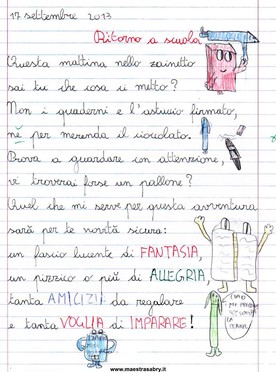 17 settembre 2013
Ritorno a scuola
Questa mattina nello zainetto
sai tu che cosa ci metto?
Non i quaderni e l'astuccio firmato,
nè per merenda il cioccolato.
Prova a guardare con attenzione,
vi troverai forse un pallone?
Quel che mi serve per questa avventura
sarà per te novità sicura:
un fascio lucente di FANTASIA,
un pizzico o più di ALLEGRIA,
tanta AMICIZIA da regalare
e tanta VOGLIA di IMPARARE!
CIAO
www.maestrasabry.it